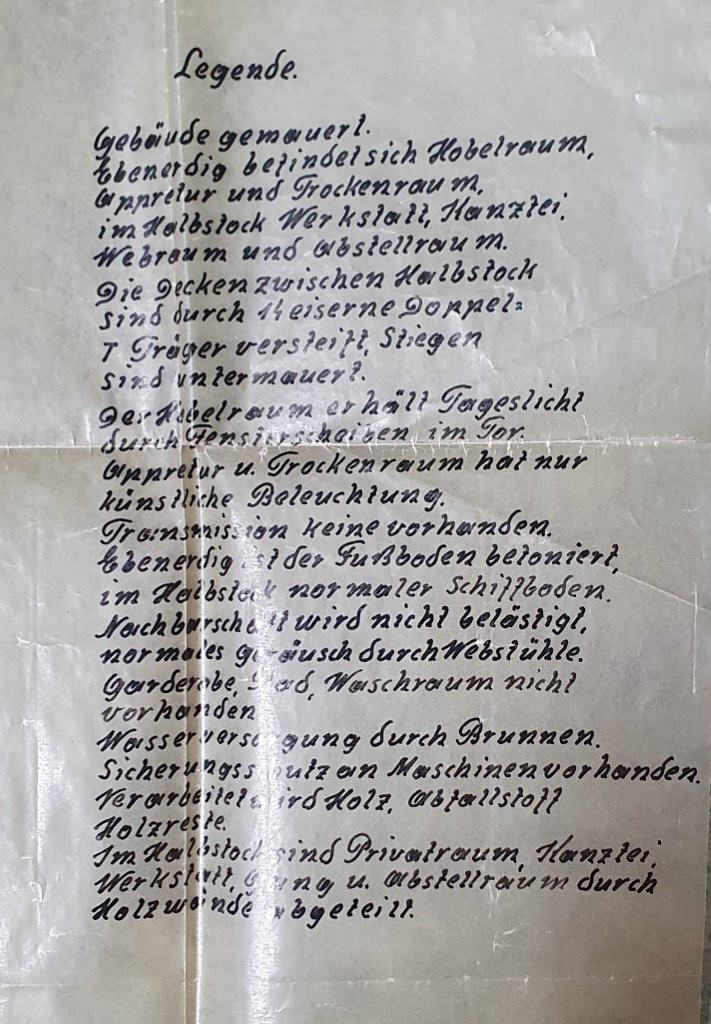 Legende.
Gebäude gemauert.
Ebenerdig befindet sich Hobelraum,
Appretur und Trockenraum,
im Halbstock Werkstatt, Kanzlei,
Webraum und Abstellraum.
Die Decken zwischen Halbstock
sind durch 14 eiserne Doppel=
T Träger versteift, Stiegen
sind untermauert.
Der Hobelraum erhält Tageslicht
durch Fensterscheiben im Tor.
Appretur u. Trockenraum hat nur
künstliche Beleuchtung.
Transmission keine vorhanden.
Ebenerdig ist der Fußboden betoniert,
im Halbstock normaler Schiffboden.
Nachbarschaft wird nicht belästigt,
normales Geräusch durch Webstühle.
Garderobe, Bad, Waschraum nicht
vorhanden
Wasserversorgung durch Brunnen.
Sicherungsschutz an Maschinen vorhanden.
Verarbeitet wird Holz, Abfallstoff
Holzreste.
Im Halbstock sind Privatraum, Kanzlei,
Werkstatt, Gang u. Abstellraum durch
Holzwände abgeteilt.